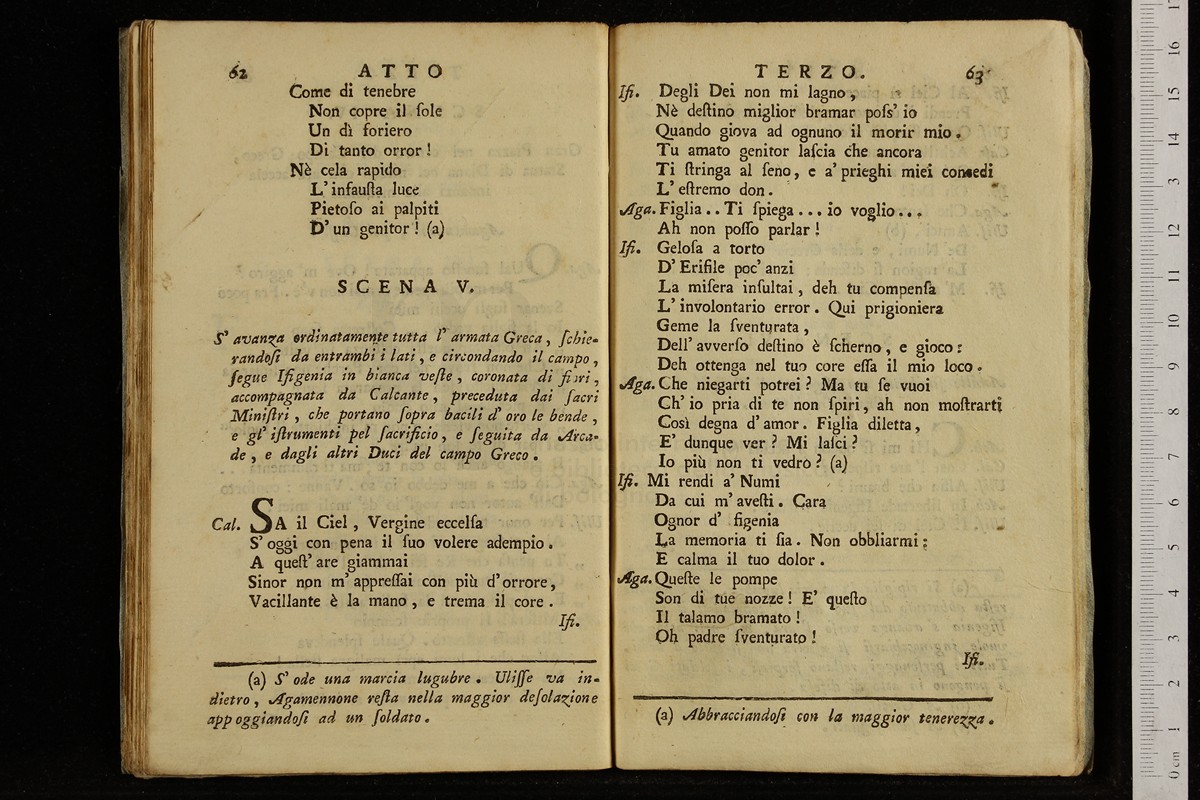 62 ATTO
Come di tenebre
Non copre il ſole
Un dì foriero
Di tanto orror!
Nè cela rapido
L' infauſta luce
Pietoſo ai palpiti
D' un genitor! (a)
SCENA V.
S' avanza ordinatamente tutta l' armata Greca, ſchie-
randoſi da entrambi i lati, e circondando il campo,
ſegue Ifigenia in bianca veſte, coronata di fiori,
accompagnata da Calcante, preceduta dai ſacri
Miniſtri, che portano ſopra bacili d' oro le bende,
e gl' iſtrumenti pel ſacrificio, e ſeguita da Arca-
de, e dagli altri Duci del campo Greco.
Cal. SA il Ciel, Vergine eccelſa
S' oggi con pena il ſuo volere adempio.
A queſt' are giammai
Sinor non m' appreſſai con più d' orrore,
Vacillante è la mano, e trema il core.
Ifi.
(a) S' ode una marcia lugubre. Uliſſe va in-
dietro, Agamennone reſta nella maggior deſolazione
appoggiandoſi ad un ſoldato.
TERZO. 63
Ifi. Degli Dei non mi lagno,
Nè deſtino miglior bramar poſs' io
Quando giova ad ognuno il morir mio.
Tu amato genitor laſcia che ancora
Ti ſtringa al ſeno, e a' prieghi miei concedi
L' eſtremo don.
Aga. Figlia.. Ti ſpiega... io voglio...
Ah non poſſo parlar!
Ifi. Geloſa a torto
D' Erifile poc' anzi
La miſera inſultai, deh tu compenſa
L' involontario error. Qui prigioniera
Geme la ſventurata,
Dell' avverſo deſtino è ſcherno, e gioco:
Deh ottenga nel tuo core eſſa il mio loco.
Aga. Che niegarti potrei? Ma tu ſe vuoi
Ch' io pria di te non ſpiri, ah non moſtrarti
Così degna d' amor. Figlia diletta,
E' dunque ver? Mi laſci?
Io più non ti vedrò? (a)
Ifi. Mi rendi a' Numi
Da cui m' aveſti. Cara
Ognor d' figenia
La memoria ti ſia. Non obbliarmi:
E calma il tuo dolor.
Aga. Queſte le pompe
Son di tue nozze! E' queſto
Il talamo bramato!
Oh padre ſventurato!
Ifi.
(a) Abbracciandoſi con la maggior tenerezza.